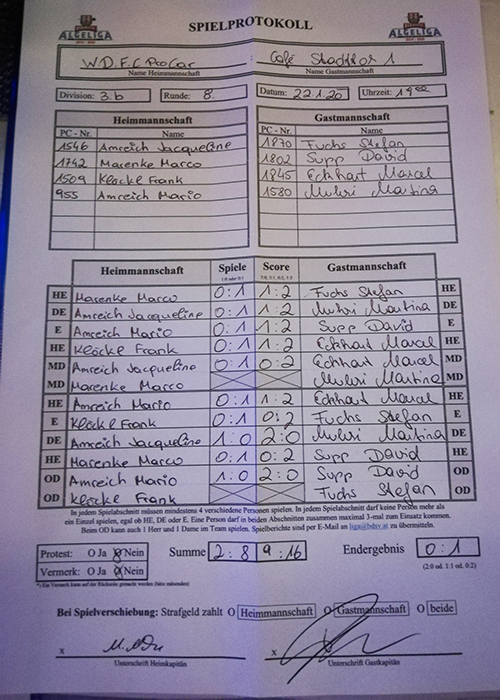 ALGELIGA SPIELPROTOKOLL ALGELIGA
W.D.F.C ProCar : Café Stadttor 1
Name Heimmannschaft Name Gastmannschaft
Division: 3.b Runde: 8. Datum: 22.1.20 Uhrzeit: 19 00
Heimmannschaft Gastmannschaft
PC - Nr. Name PC - Nr. Name
1546 Amreich Jacqueline 1870 Fuchs Stefan
1742 Marenke Marco 1802 Supp David
1509 Klöcke Frank 1845 Eckhart Marcel
955 Amreich Mario 1580 Martina
Heimmannschaft Spiele Score Gastmannschaft
HE Marenke Marco 0:1 1:2 Fuchs Stefan HE
DE Amreich Jacqueline 0:1 1:2 Martina DE
E Amreich Mario 0:1 1:2 Supp David E
HE Klöcke Frank 0:1 1:2 Eckhart Marcel HE
MD Amreich Jacqueline 0:1 0:2 Eckhart Marcel MD
MD Marenke Marco Martina MD
HE Amreich Mario 0:1 1:2 Eckhart Marcel HE
E Klöcke Frank 0:1 0:2 Fuchs Stefan E
DE Amreich Jacqueline 1:0 2:0 Martina DE
HE Marenke Marco 0:1 0:2 Supp David HE
OD Amreich Mario 1:0 2:0 Supp David OD
OD Klöcke Frank Fuchs Stefan OD
In jedem Spielabschnitt müssen mindestens 4 verschiedene Personen spielen. In jedem Spielabschnitt darf keine Person mehr als
ein Einzel spielen, egal ob HE, DE oder E. Eine Person darf in beiden Abschnitten zusammen maximal 3-mal zum Einsatz kommen.
Beim OD kann auch 1 Herr und 1 Dame im Team spielen. Spielberichte sind per E-Mail an liga@bdsv.at zu übermitteln.
Protest: O Ja O Nein Summe 2:8 9:16 Endergebnis 0:1
Vermerk: O Ja O Nein (2:0 od. 1:1 od. 0:2)
Bei Spielverschiebung: Strafgeld zahlt O Heimmannschaft O Gastmannschaft O beide
x x
Unterschrift Heimkapitän Unterschrift Gastkapitän